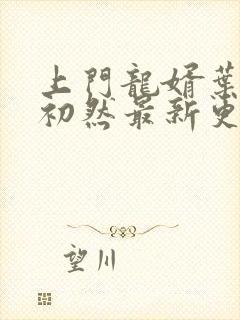 上門龍婿葉
初然最新更
望川